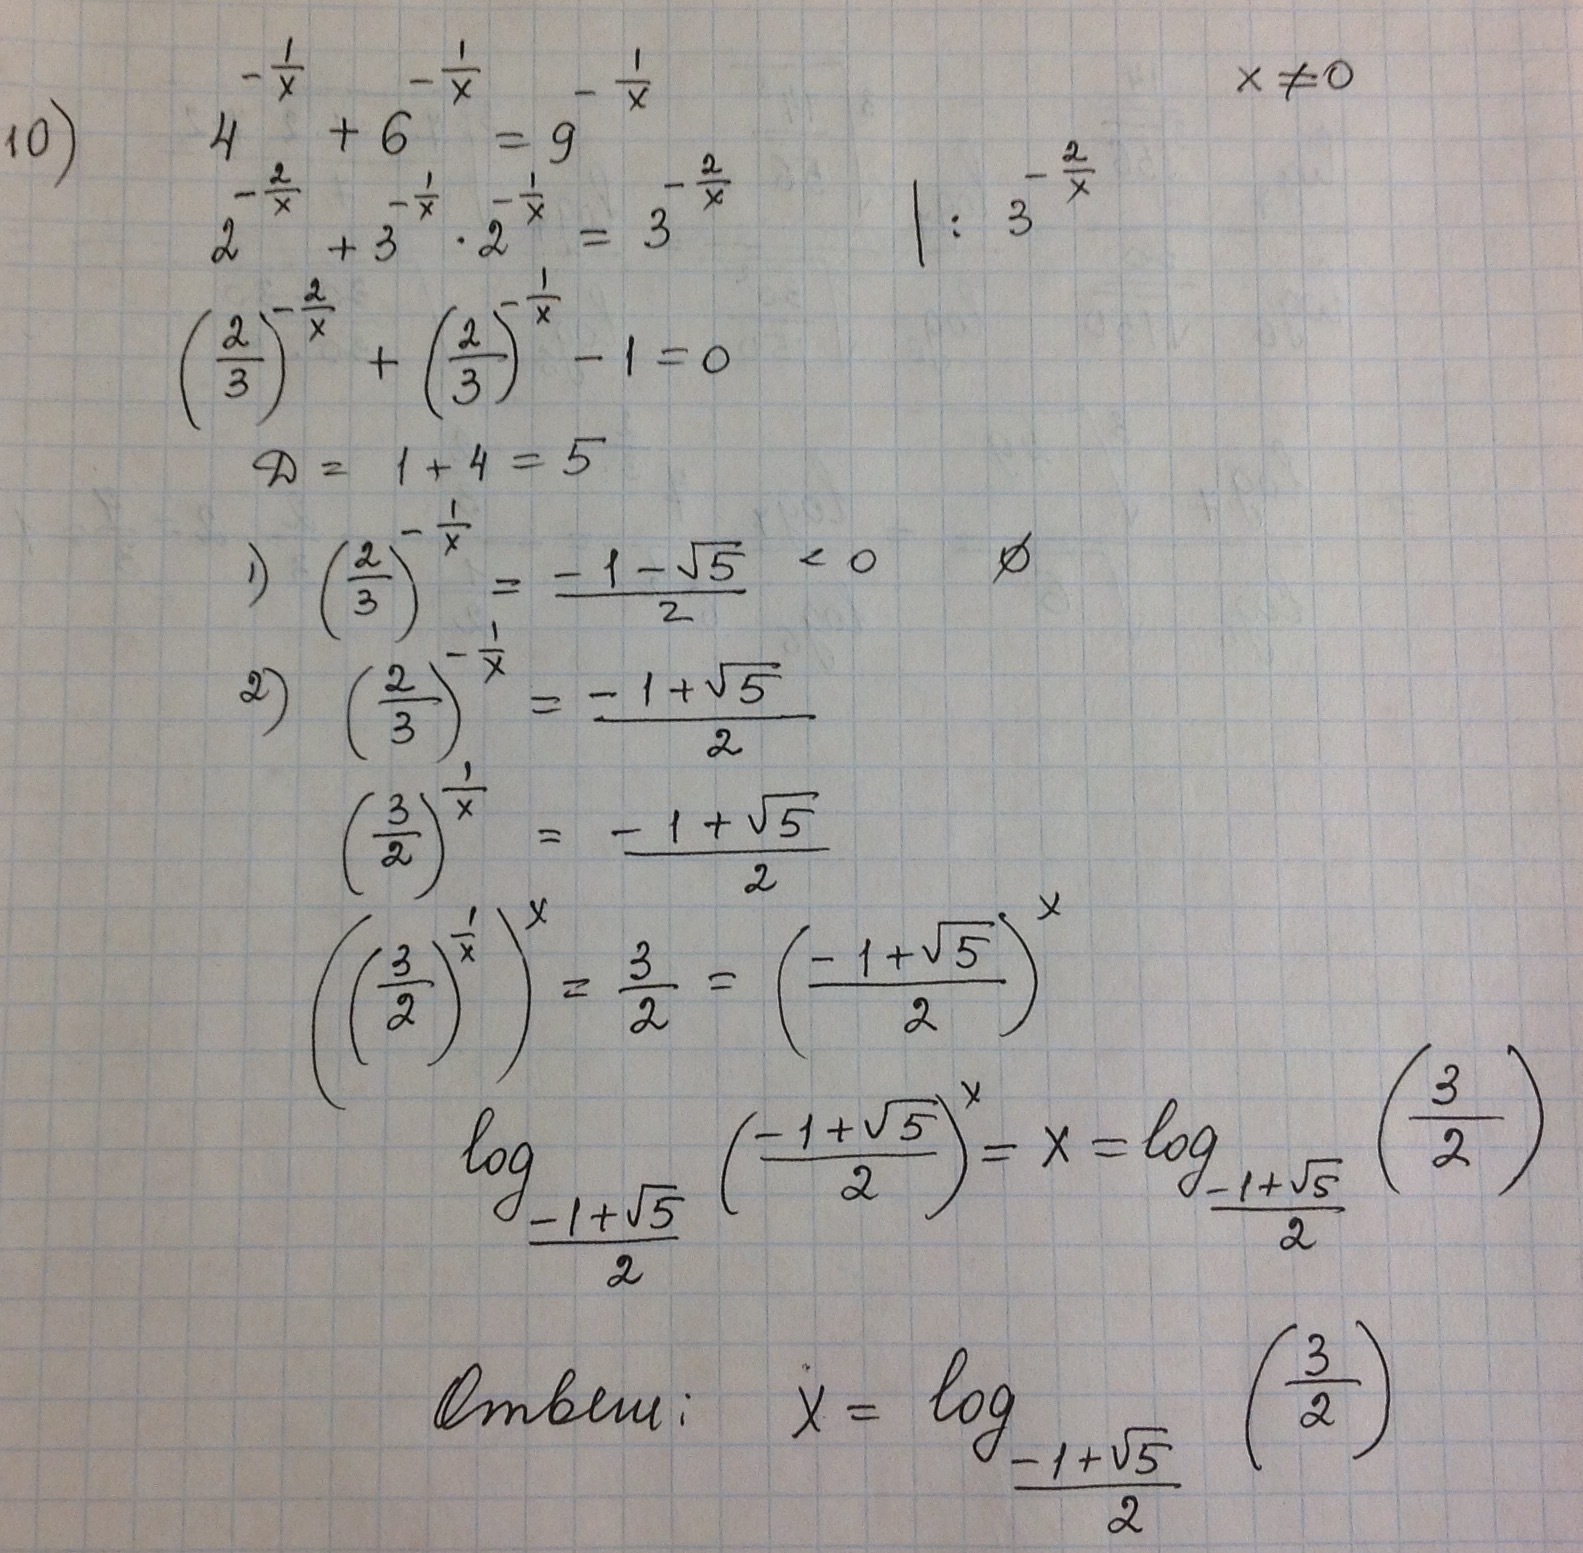 10) 4^(-1/x) + 6^(-1/x) = 9^(-1/x) x ≠ 0
2^(-2/x) + 3^(-1/x) · 2^(-1/x) = 3^(-2/x) | : 3^(-2/x)
(2/3)^(-2/x) + (2/3)^(-1/x) - 1 = 0
D = 1 + 4 = 5
1) (2/3)^(-1/x) = (-1-√5)/2 < 0 ∅
2) (2/3)^(-1/x) = (-1+√5)/2
(3/2)^(1/x) = (-1+√5)/2
((3/2)^(1/x))^x = 3/2 = ((-1+√5)/2)^x
log_((-1+√5)/2) ((-1+√5)/2)^x = x = log_((-1+√5)/2) (3/2)
Ответ: x = log_((-1+√5)/2) (3/2)